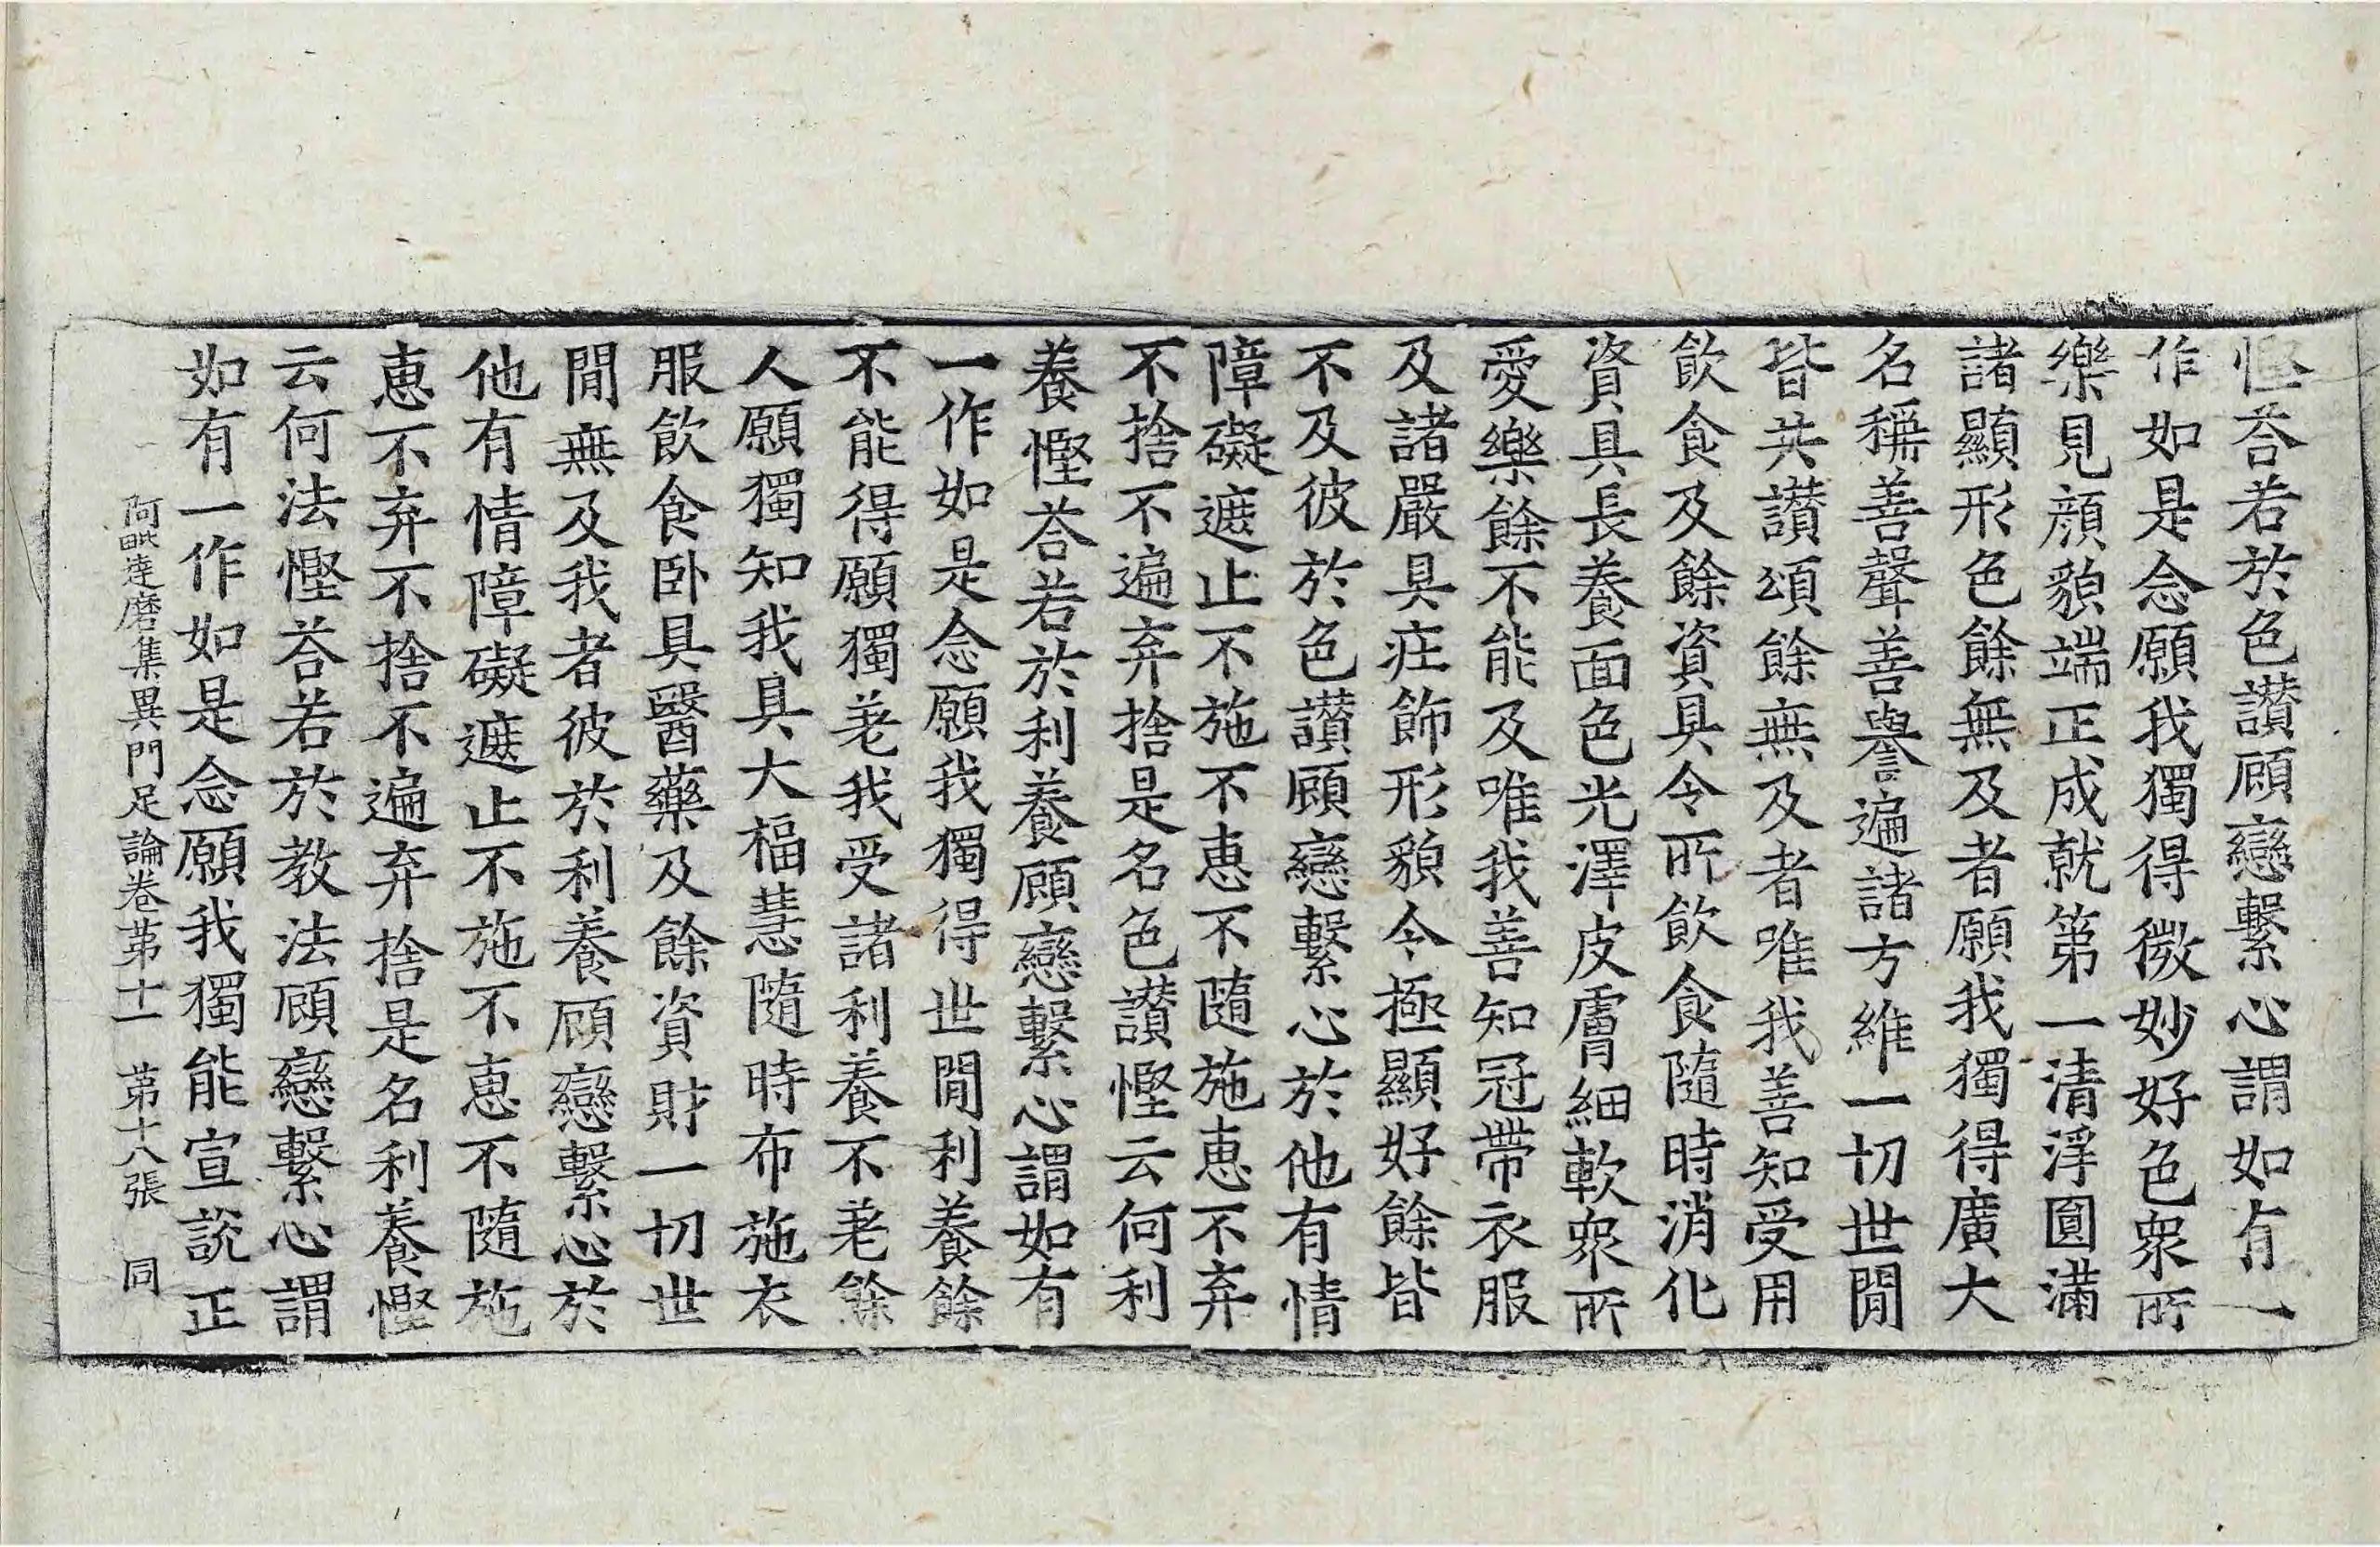 慳荅若於色讃顧戀繫心謂如有一
作如是念願我獨得微妙好色衆所
樂見顔貌端正成就第一清淨圓滿
諸顯形色餘無及者願我獨得廣大
名稱善聲善譽遍諸方維一切世閒
皆共讃頌餘無及者唯我善知受用
飲食及餘資具令所飲食隨時消化
資具長養面色光澤皮膚細軟衆所
愛樂餘不能及唯我善知冠帶衣服
及諸嚴具莊飾形貌令極顯好餘皆
不及彼於色讃顧戀繫心於他有情
障礙遮止不施不惠不隨施惠不弃
不捨不遍弃捨是名色讃慳云何利
養慳荅若於利養顧戀繫心謂如有
一作如是念願我獨得世閒利養餘
不能得願獨老我受諸利養不老餘
人願獨知我具大福慧隨時布施衣
服飲食卧具醫藥及餘資財一切世
閒無及我者彼於利養顧戀繫心於
他有情障礙遮止不施不惠不隨施
惠不弃不捨不遍弃捨是名利養慳
云何法慳荅若於教法顧戀繫心謂
如有一作如是念願我獨能宣說正
阿毗達磨集異門足論卷第十一 第十八張 同